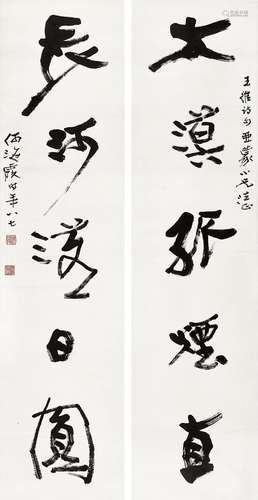 王維詩句 亞蒙小兄法正
大漠孤煙直
長河落日圓
何海霞時年八七